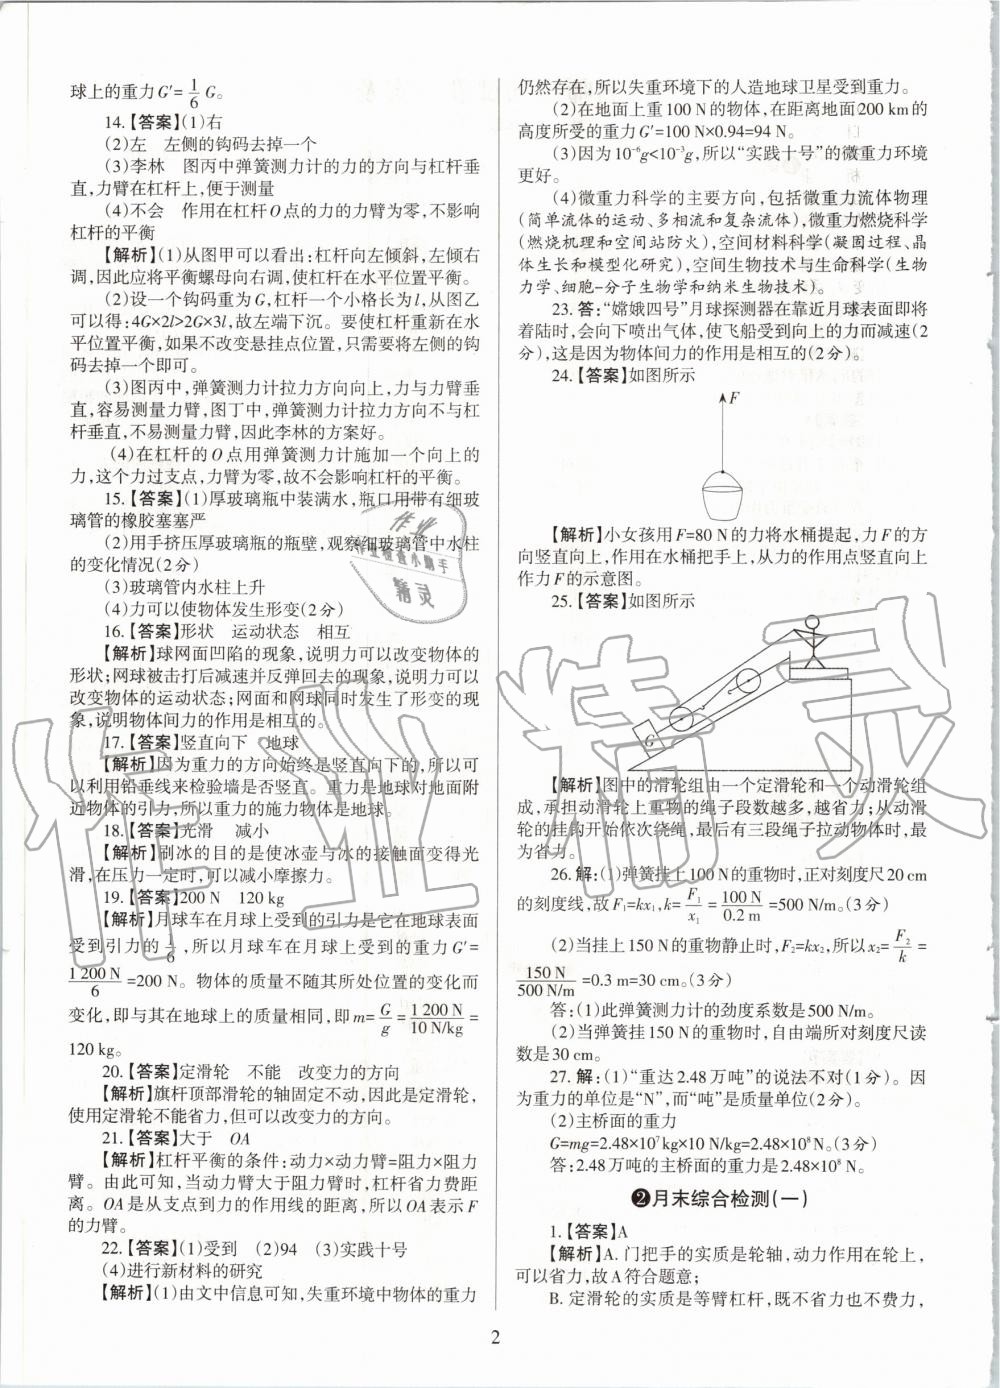 球上的重力G′=1/6 G。
14.【答案】(1)右
(2)左　左侧的钩码去掉一个
(3)李林　图丙中弹簧测力计的力的方向与杠杆垂
直,力臂在杠杆上,便于测量
(4)不会　作用在杠杆O点的力的力臂为零,不影响
杠杆的平衡
【解析】(1)从图甲可以看出:杠杆向左倾斜,左倾右
调,因此应将平衡螺母向右调,使杠杆在水平位置平衡。
(2)设一个钩码重为G,杠杆一个小格长为l,从图乙
可以得:4G×2l>2G×3l,故左端下沉。要使杠杆重新在水
平位置平衡,如果不改变悬挂点位置,只需要将左侧的钩
码去掉一个即可。
(3)图丙中,弹簧测力计拉力方向向上,力与力臂垂
直,容易测量力臂,图丁中,弹簧测力计拉力方向不与杠
杆垂直,不易测量力臂,因此李林的方案好。
(4)在杠杆的O点用弹簧测力计施加一个向上的
力,这个力过支点,力臂为零,故不会影响杠杆的平衡。
15.【答案】(1)厚玻璃瓶中装满水,瓶口用带有细玻
璃管的橡胶塞塞严
(2)用手挤压厚玻璃瓶的瓶壁,观察细玻璃管中水柱
的变化情况(2分)
(3)玻璃管内水柱上升
(4)力可以使物体发生形变(2分)
16.【答案】形状　运动状态　相互
【解析】球网面凹陷的现象,说明力可以改变物体的
形状;网球被击打后减速并反弹回去的现象,说明力可以
改变物体的运动状态;网面和网球同时发生了形变的现
象,说明物体间力的作用是相互的。
17.【答案】竖直向下　地球
【解析】因为重力的方向始终是竖直向下的,所以可
以利用铅垂线来检验墙是否竖直。重力是地球对地面附
近物体的引力,所以重力的施力物体是地球。
18.【答案】光滑　减小
【解析】刷冰的目的是使冰壶与冰的接触面变得光
滑,在压力一定时,可以减小摩擦力。
19.【答案】200 N　120 kg
【解析】月球车在月球上受到的引力是它在地球表面
受到引力的1/6,所以月球车在月球上受到的重力G′=
1 200 N/6=200 N。物体的质量不随其所处位置的变化而
变化,即与其在地球上的质量相同,即m=G/g=1 200 N/10 N/kg=
120 kg。
20.【答案】定滑轮　不能　改变力的方向
【解析】旗杆顶部滑轮的轴固定不动,因此是定滑轮,
使用定滑轮不能省力,但可以改变力的方向。
21.【答案】大于　OA
【解析】杠杆平衡的条件:动力×动力臂=阻力×阻力
臂。由此可知,当动力臂大于阻力臂时,杠杆省力费距
离。OA是从支点到力的作用线的距离,所以OA表示F
的力臂。
22.【答案】(1)受到　(2)94　(3)实践十号
(4)进行新材料的研究
【解析】(1)由文中信息可知,失重环境中物体的重力
仍然存在,所以失重环境下的人造地球卫星受到重力。
(2)在地面上重100 N的物体,在距离地面200 km的
高度所受的重力G′=100 N×0.94=94 N。
(3)因为10⁻⁶g<10⁻³g,所以“实践十号”的微重力环境
更好。
(4)微重力科学的主要方向,包括微重力流体物理
(简单流体的运动、多相流和复杂流体),微重力燃烧科学
(燃烧机理和空间站防火),空间材料科学(凝固过程、晶
体生长和模型化研究),空间生物技术与生命科学(生物
力学、细胞-分子生物学和纳米生物技术)。
23.答:“嫦娥四号”月球探测器在靠近月球表面即将
着陆时,会向下喷出气体,使飞船受到向上的力而减速(2
分),这是因为物体间力的作用是相互的(2分)。
24.【答案】如图所示
F
【解析】小女孩用F=80 N的力将水桶提起,力F的方
向竖直向上,作用在水桶把手上,从力的作用点竖直向上
作力F的示意图。
25.【答案】如图所示
G
【解析】图中的滑轮组由一个定滑轮和一个动滑轮组
成,承担动滑轮上重物的绳子段数越多,越省力;从动滑
轮的挂钩开始依次绕绳,最后有三段绳子拉动物体时,最
为省力。
26.解:(1)弹簧挂上100 N的重物时,正对刻度尺20 cm
的刻度线,故F₁=kx₁,k=F₁/x₁=100 N/0.2 m=500 N/m。(3分)
(2)当挂上150 N的重物静止时,F₂=kx₂,所以x₂=F₂/k=
150 N/500 N/m=0.3 m=30 cm。(3分)
答:(1)此弹簧测力计的劲度系数是500 N/m。
(2)当弹簧挂150 N的重物时,自由端所对刻度尺读
数是30 cm。
27.解:(1)“重达2.48万吨”的说法不对(1分)。因
为重力的单位是“N”,而“吨”是质量单位(2分)。
(2)主桥面的重力
G=mg=2.48×10⁷ kg×10 N/kg=2.48×10⁸ N。(3分)
答:2.48万吨的主桥面的重力是2.48×10⁸ N。
❷月末综合检测(一)
1.【答案】A
【解析】A. 门把手的实质是轮轴,动力作用在轮上,
可以省力,故A符合题意;
B. 定滑轮的实质是等臂杠杆,既不省力也不费力,
2
作业
作业检查小助手
精灵
作业精灵